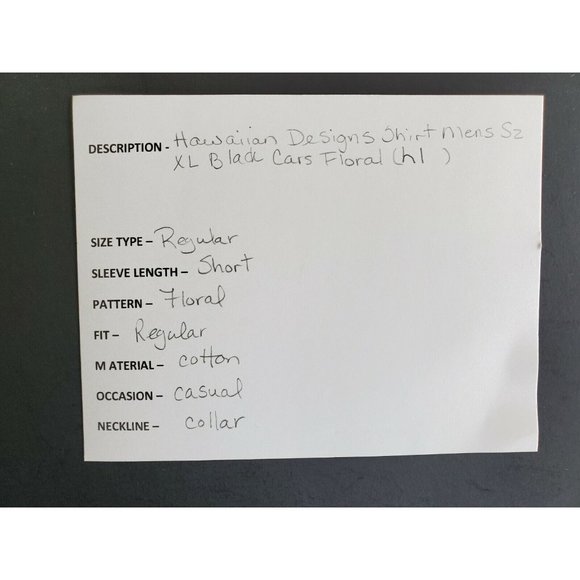 DESCRIPTION - Hawaiian Designs Shirt Mens Sz
XL Black Cars Floral (h1 )
SIZE TYPE – Regular
SLEEVE LENGTH – Short
PATTERN – Floral
FIT – Regular
MATERIAL – cotton
OCCASION – casual
NECKLINE – collar